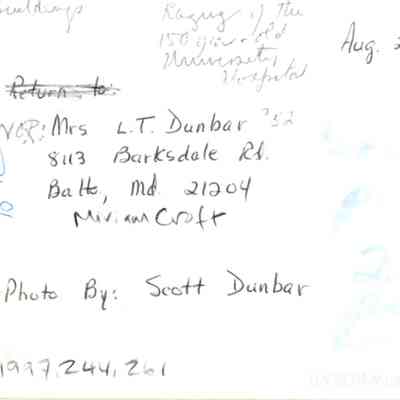 buildings
Razing of the
150 year-old
University
Hospital
Aug. 2
Return to:
VCP: Mrs L.T. Dunbar '52
8113 Barksdale Rd.
Balto, Md 21204
Miriam Croft
Photo By: Scott Dunbar
1997.244.261